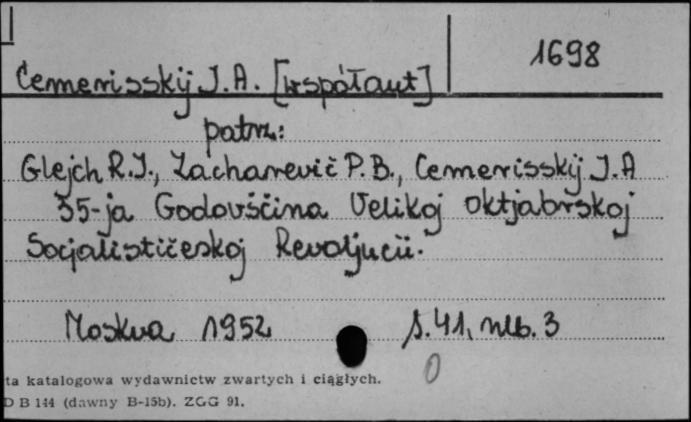 1698
Cemerisskij J.A. [współaut]
patrz:
Glejch R.J., Zacharevič P.B., Cemerisskij J.A
35-ja Godovščina Velikoj Oktjabrskoj
Socjalističeskoj Revoljucii.
Moskva 1952 s. 41, nlb. 3
0
ta katalogowa wydawnictw zwartych i ciągłych.
D B 144 (dawny B-15b). ZGG 91.